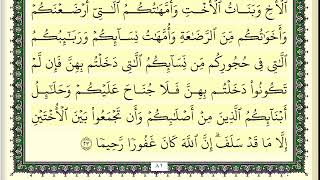 ٱلْأَخِ وَبَنَاتُ ٱلْأُخْتِ وَأُمَّهَٰتُكُمُ ٱلَّٰتِىٓ أَرْضَعْنَكُمْ
وَأَخَوَٰتُكُم مِّنَ ٱلرَّضَٰعَةِ وَأُمَّهَٰتُ نِسَآئِكُمْ وَرَبَٰٓئِبُكُمُ
ٱلَّٰتِى فِى حُجُورِكُم مِّن نِّسَآئِكُمُ ٱلَّٰتِى دَخَلْتُم بِهِنَّ فَإِن لَّمْ
تَكُونُوا۟ دَخَلْتُم بِهِنَّ فَلَا جُنَاحَ عَلَيْكُمْ وَحَلَٰٓئِلُ
أَبْنَآئِكُمُ ٱلَّذِينَ مِنْ أَصْلَٰبِكُمْ وَأَن تَجْمَعُوا۟ بَيْنَ ٱلْأُخْتَيْنِ
إِلَّا مَا قَدْ سَلَفَ ۗ إِنَّ ٱللَّهَ كَانَ غَفُورًا رَّحِيمًا ٢٣
٨١